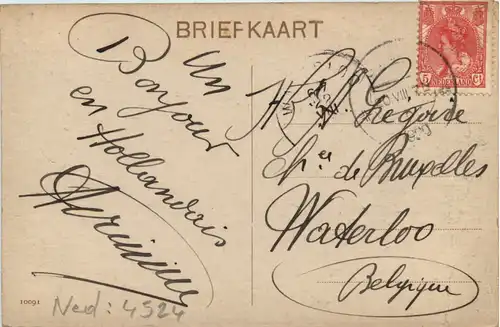 BRIEFKAART
Un
Bonjour
en Hollandais
H Gregoire
Ch ee de Bruxelles
Waterloo
Belgique
5 Ct
NEDERLAND
VIII
10091
Ned: 4524